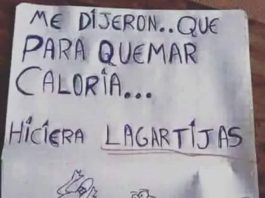 ME DIJERON..QUE
PARA QUEMAR
CALORIA...
HICIERA LAGARTIJAS